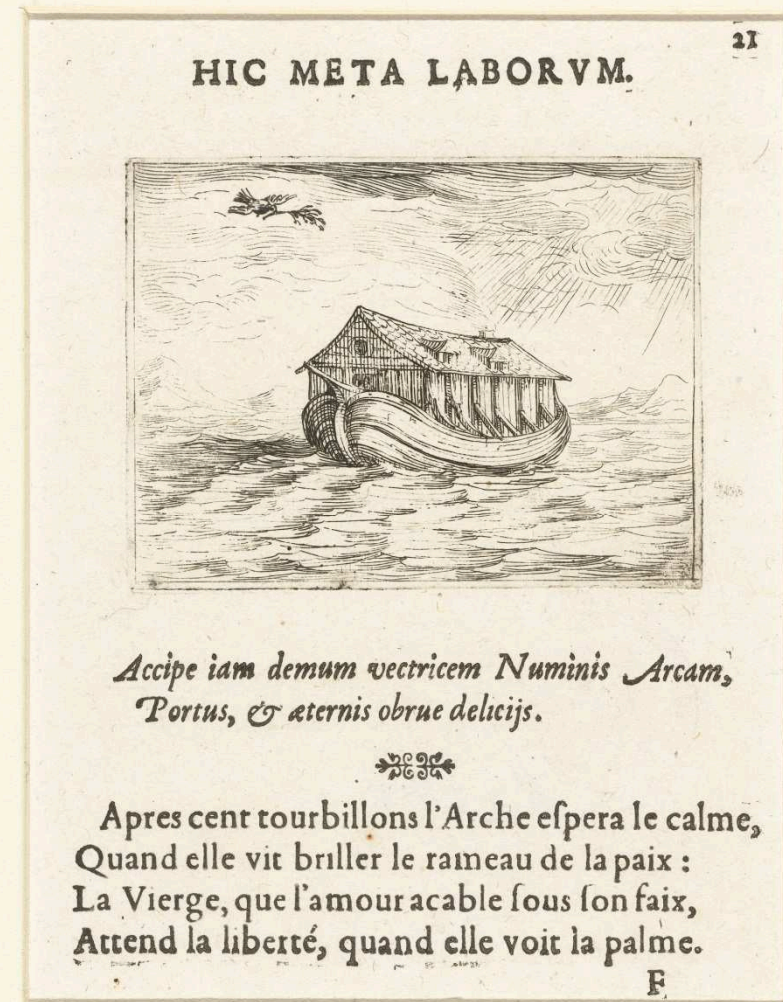 21
HIC META LABORVM.
Accipe iam demum vectricem Numinis Arcam,
Portus, & æternis obrue delicijs.
Apres cent tourbillons l'Arche eſpera le calme,
Quand elle vit briller le rameau de la paix :
La Vierge, que l'amour acable ſous ſon faix,
Attend la liberté, quand elle voit la palme.
F